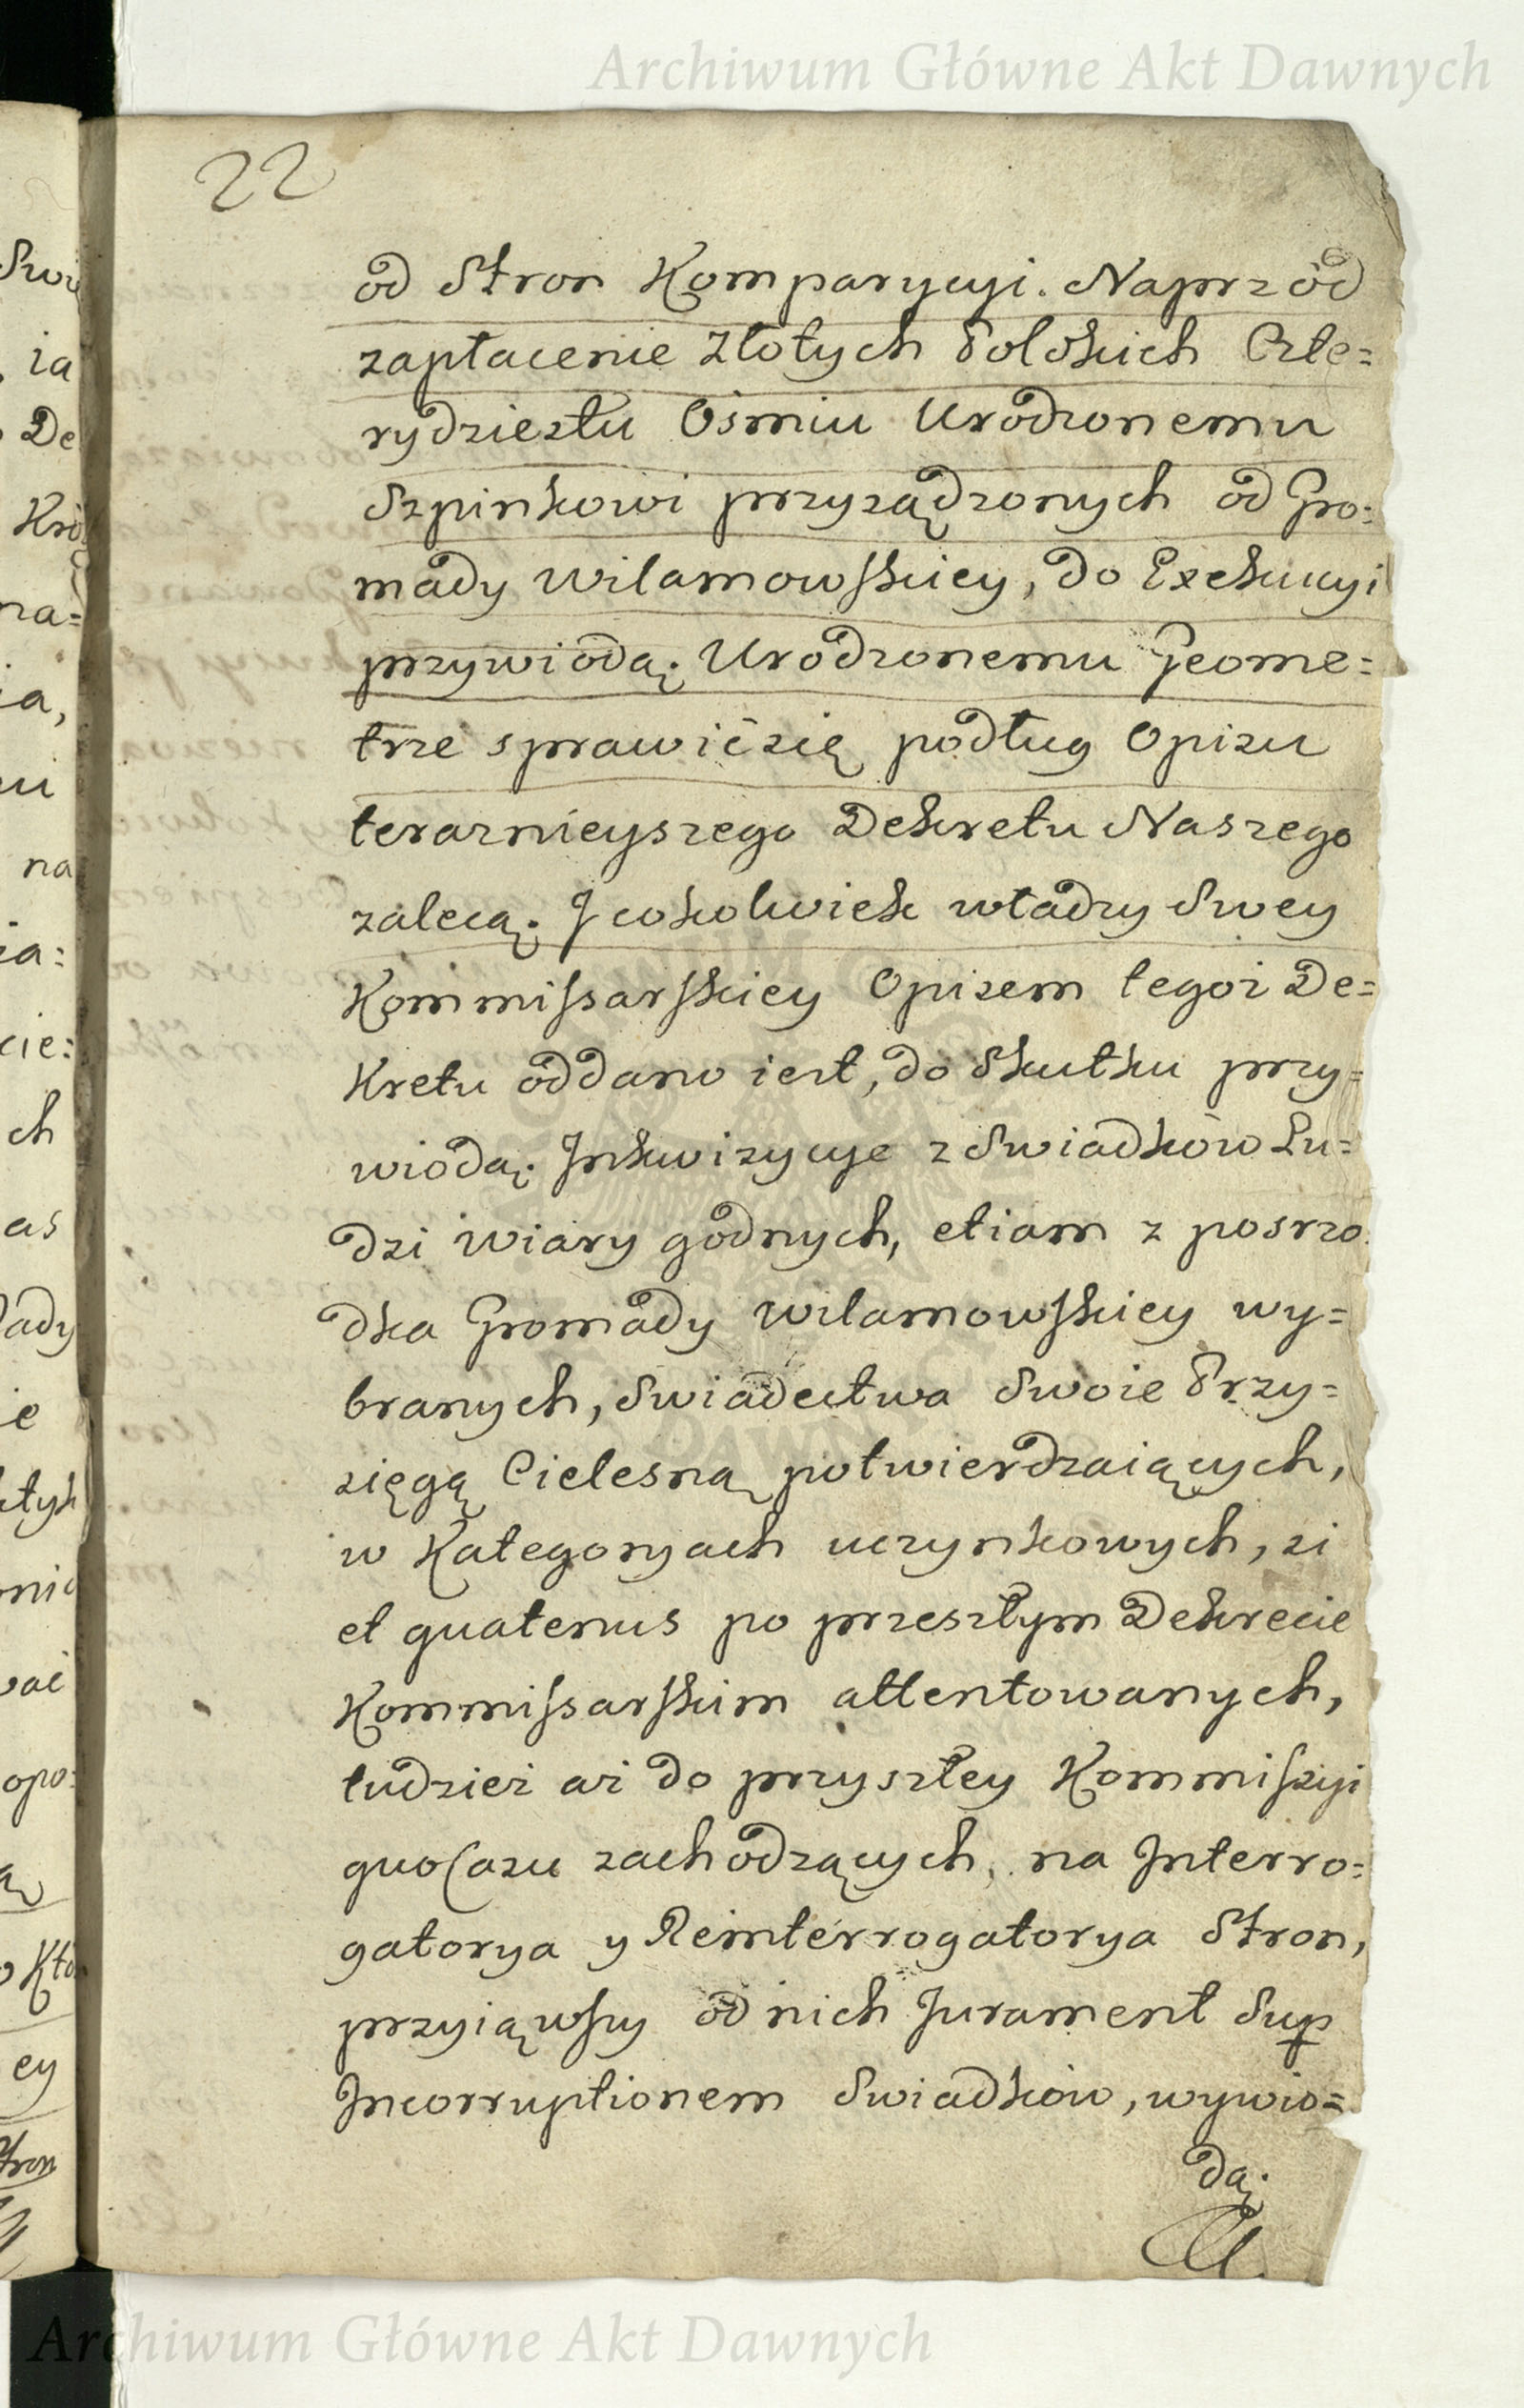 Archiwum Główne Akt Dawnych
22
od Stron Komparycyi. Naprzód
zapłacenie złotych Polskich Czte=
rydziestu Ośmiu Urodzonemu
Szpinkowi przysądzonych od Gro=
mady Wilamowskiey, do Exekucyi
przywiodą. Urodzonemu Geome=
trze sprawić się podług Opisu
teraznieyszego Dekretu Naszego
zalecą. J cokolwiek władzy Swey
Kommissarskiey Opisem tegoż De=
kretu oddano iest, do Skutku przy=
wiodą. Inkwizycye z Swiadków Lu=
dzi wiary godnych, etiam z posrzo
dka Gromady Wilamowskiey wy=
branych, Swiadectwa Swoie Przy=
sięgą Cielesną potwierdzaiących,
w Kategoryach uczynkowych, si
et quatenus po przeszłym Dekrecie
Kommissarskim attentowanych,
tudzież aż do przyszłey Kommissyi
quo Casu zachodzących, na Interro=
gatorya y Reinterrogatorya Stron,
przyiąwszy od nich Jurament Sup
Incorruptionem Swiadków, wywio=
dą.
DAWNYCH
Archiwum Główne Akt Dawnych